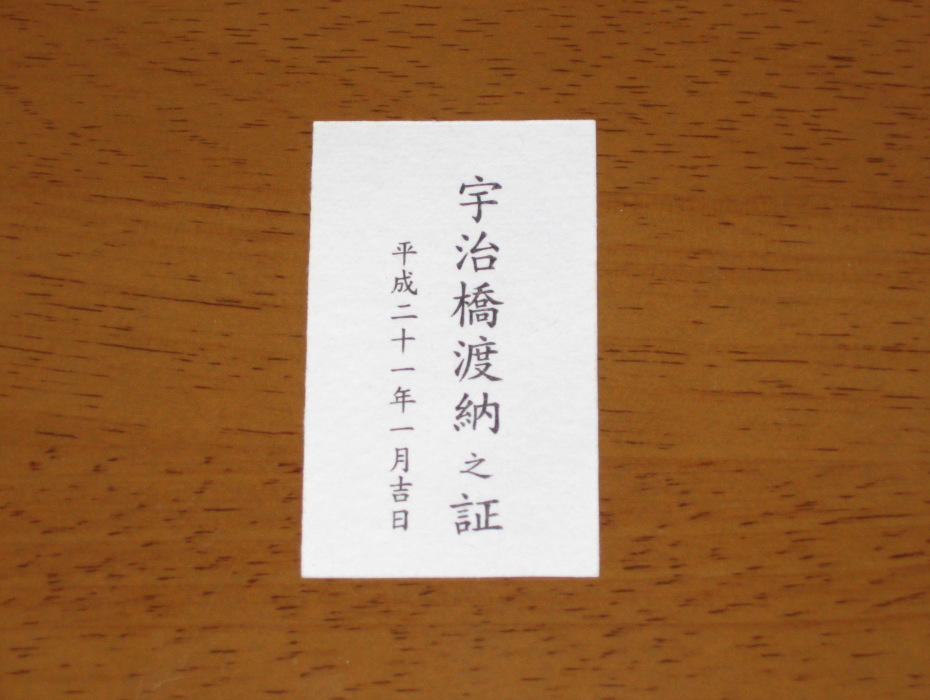 宇治橋渡納之証
平成二十一年一月吉日